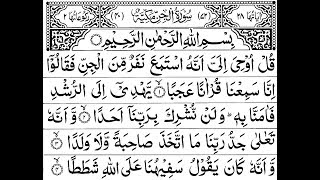 اٰيَاتُهَا ٢٨ (٧٢) سُوْرَةُ الْجِنِّ مَكِّيَّةٌ (٤٠) رُكُوْعَاتُهَا ٢
بِسْمِ اللّٰهِ الرَّحْمٰنِ الرَّحِيْمِ
قُلْ اُوْحِيَ اِلَيَّ اَنَّهُ اسْتَمَعَ نَفَرٌ مِّنَ الْجِنِّ فَقَالُوْۤا
اِنَّا سَمِعْنَا قُرْاٰنًا عَجَبًا ۙ١ يَّهْدِيْۤ اِلَى الرُّشْدِ
فَاٰمَنَّا بِهٖ ؕ وَلَنْ نُّشْرِكَ بِرَبِّنَاۤ اَحَدًا ۙ٢ وَّاَنَّهٗ
تَعٰلٰى جَدُّ رَبِّنَا مَا اتَّخَذَ صَاحِبَةً وَّلَا وَلَدًا ۙ٣
وَّاَنَّهٗ كَانَ يَقُوْلُ سَفِيْهُنَا عَلَى اللّٰهِ شَطَطًا ۙ٤